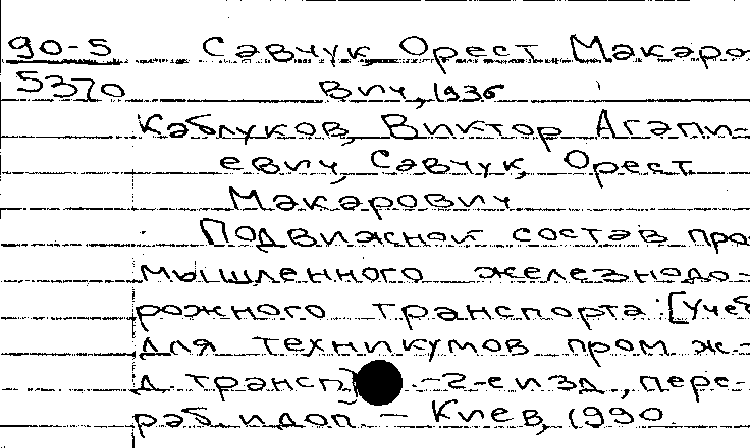 90-5 Савчук, Орест Макаро-
5370 вич, 1936
Каблуков, Виктор Агапи-
евич, Савчук, Орест
Макарович
Подвижной состав про-
мышленного железнодо-
рожного транспорта: [Учеб.
для техникумов пром. ж.-
д. трансп.] .-2-е изд., пере-
раб. и доп. - Киев, 1990.